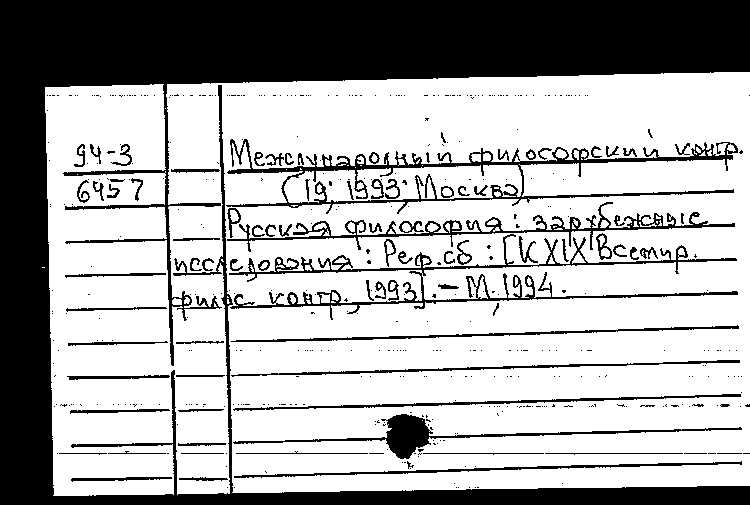 94-3 Международный философский контр.
6457 (19; 1993; Москва).
Русская философия : зарубежные
исследования : Реф.сб : [К XIX Всемир.
филос. контр., 1993]. - М. 1994.